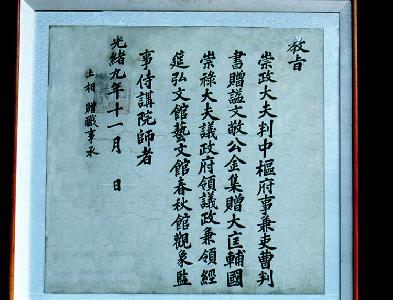 教旨
崇政大夫判中樞府事兼吏曹判
書贈謚文敬公金集贈大匡輔國
崇祿大夫議政府領議政兼領經
筵弘文館藝文館春秋館觀象監
事侍講院師者
光緒九年十一月　日
上相 贈職事承